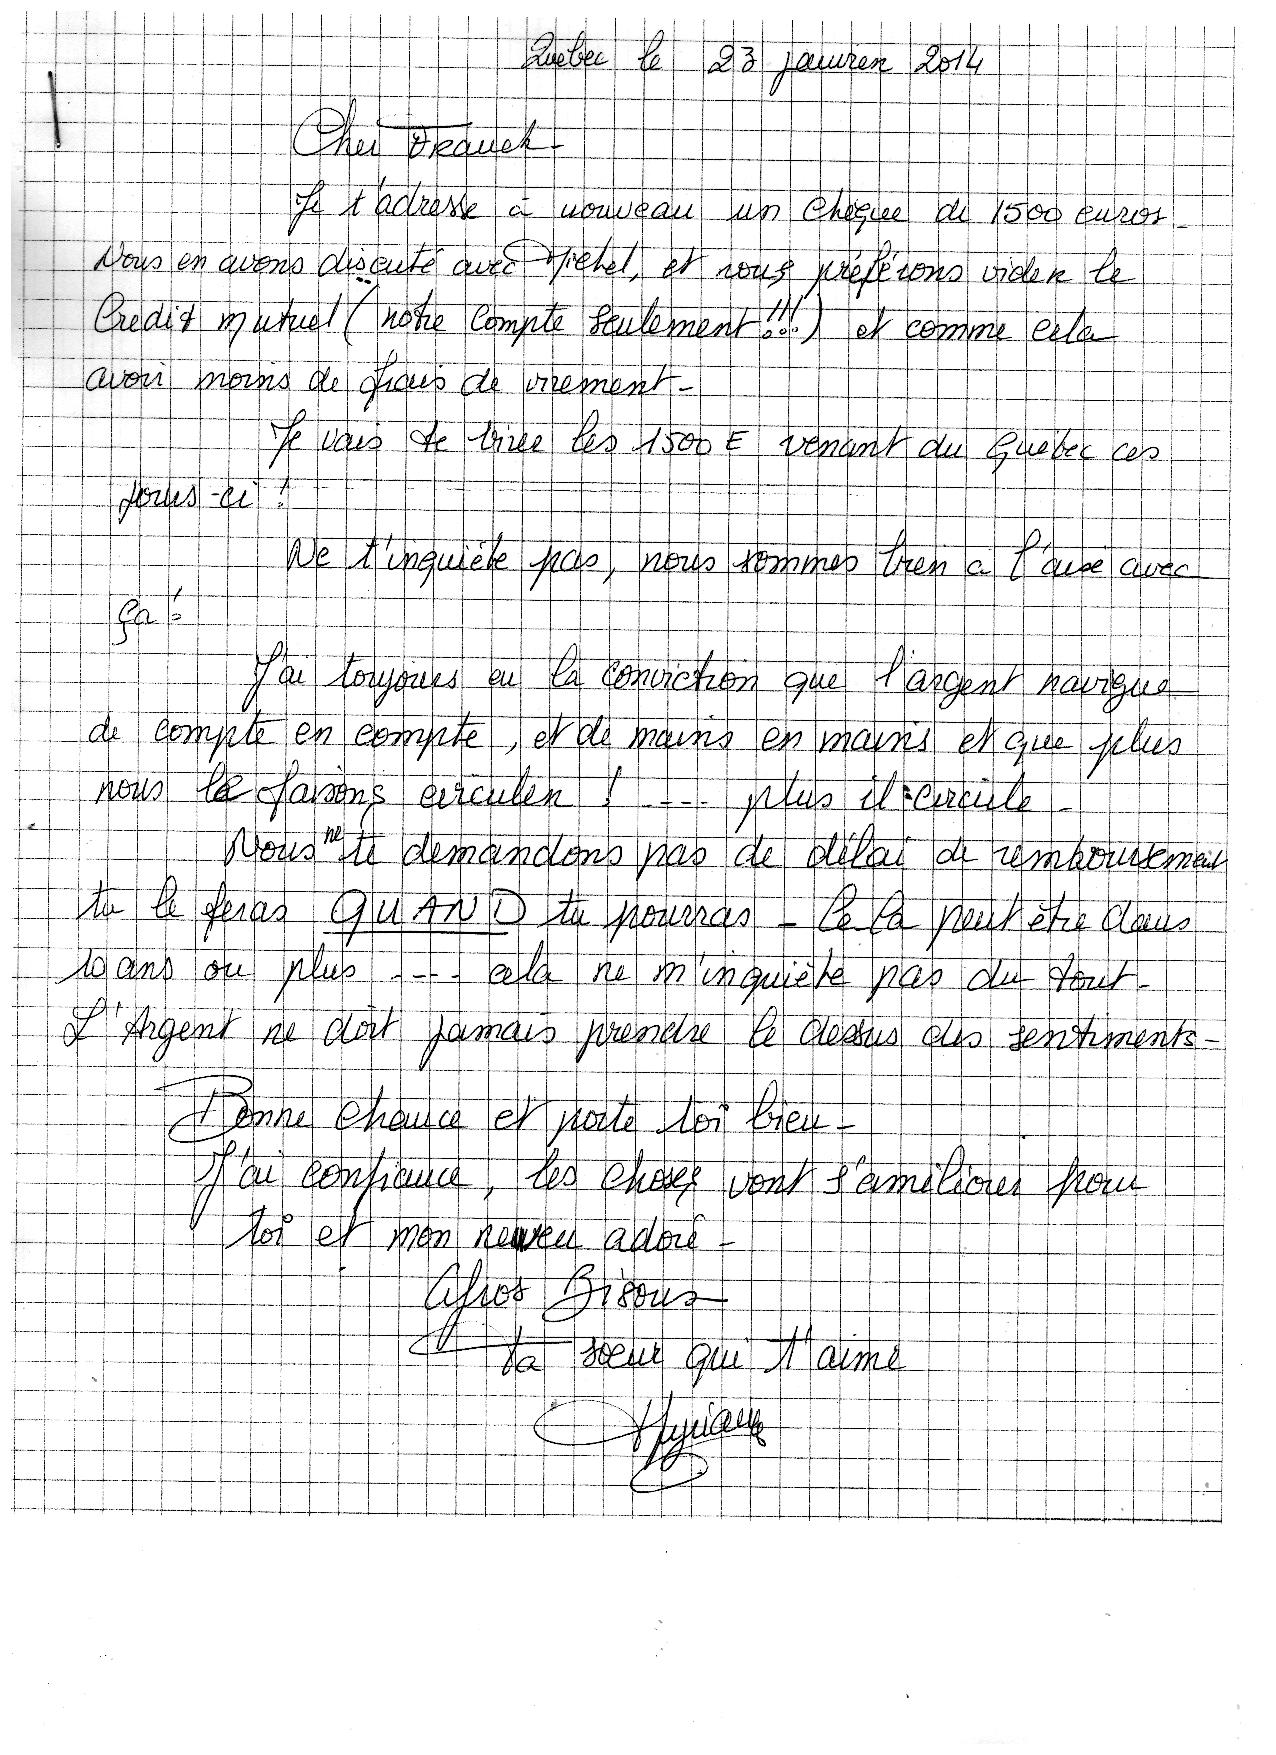 Quebec le 23 janvier 2014
Cher Franck -
Je t'adresse à nouveau un chèque de 1500 euros -
Nous en avons discuté avec Michel, et nous préférons vider le
Crédit mutuel (notre compte seulement !!!) et comme cela
avoir moins de frais de virement -
Je vais te virer les 1500 E venant du Québec ces
jours-ci !
Ne t'inquiète pas, nous sommes bien a l'aise avec
ça !
J'ai toujours eu la conviction que l'argent navigue
de compte en compte, et de mains en mains et que plus
nous le faisons circuler ! ---- plus il circule -
Nous ne te demandons pas de délai de remboursement
tu le feras QUAND tu pourras - Cela peut être dans
10 ans ou plus ---- cela ne m'inquiète pas du tout -
L'Argent ne doit jamais prendre le dessus des sentiments -
Bonne chance et porte toi bien -
J'ai confiance, les choses vont s'améliorer pour
toi et mon neveu adoré -
Gros Bisous
Ta soeur qui t'aime
Myriam